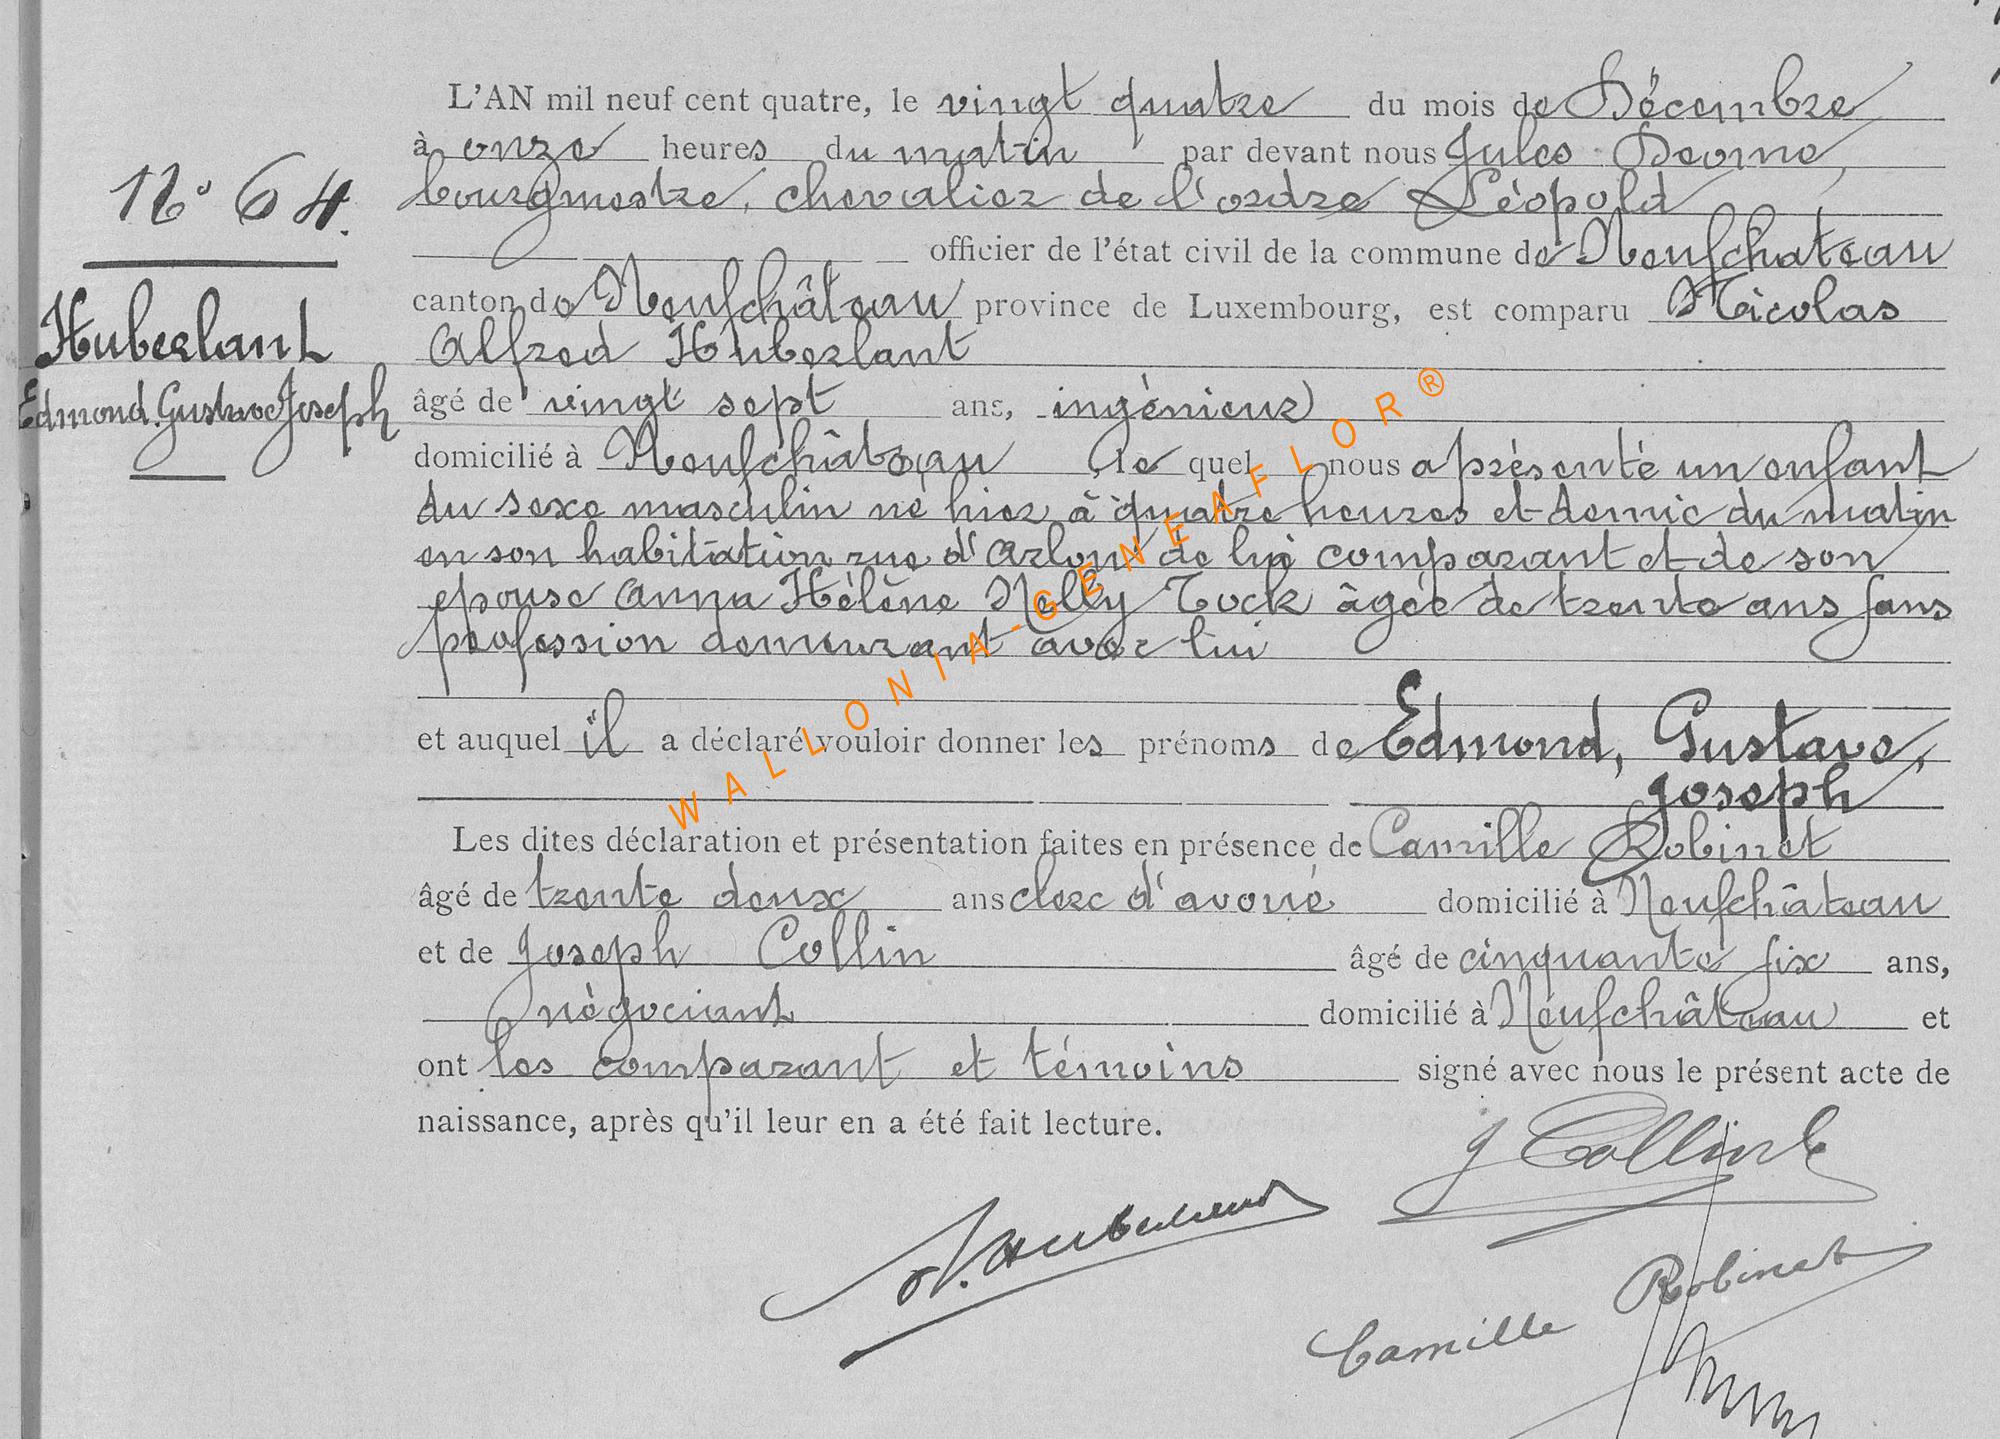 L'AN mil neuf cent quatre, le vingt quatre du mois de Décembre
à onze heures du matin par devant nous Jules
bourgmestre, chevalier de l'ordre Léopold
officier de l'état civil de la commune de Neufchateau
canton de Neufchâteau province de Luxembourg, est comparu Nicolas
Alfred Huberlant
âgé de vingt sept ans, ingénieur
domicilié à Neufchâteau le quel nous a présenté un enfant
du sexe masculin né hier à quatre heures et demie du matin
en son habitation rue d'Arlon de lui comparant et de son
épouse Anna Hélène Nelly Tock âgée de trente ans sans
profession demeurant avec lui
et auquel il a déclaré vouloir donner les prénoms de Edmond, Gustave,
Joseph
Les dites déclaration et présentation faites en présence de Camille Robinet
âgé de trente deux ans clerc d'avoué domicilié à Neufchâteau
et de Joseph Collin âgé de cinquante six ans,
négociant domicilié à Neufchâteau et
ont les comparant et témoins signé avec nous le présent acte de
naissance, après qu'il leur en a été fait lecture.
N° 64.
Huberlant
Edmond. Gustave Joseph
J Collin
N. Huberlant
Camille Robinet
WALLONIA-GENEAFLOR ®